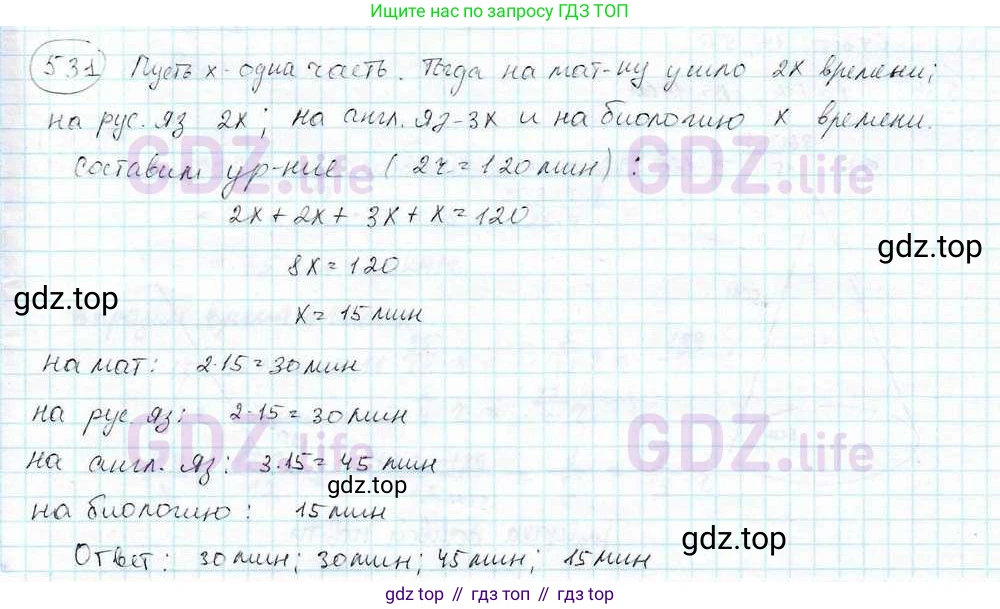 Ищите ли по запросу ГДЗ ТОП
531 Пусть x - одна часть. Тогда на мат-ку ушло 2x времени;
на рус. яз 2x; на англ. яз - 3x и на биологию x времени.
Составим ур-ние (2ч = 120 мин):
GDZ.life GDZ.life
2x + 2x + 3x + x = 120
gdz.top
8x = 120
gdz.top
x = 15 мин
на мат: 2·15 = 30 мин
на рус. яз: 2·15 = 30 мин
GDZ.life GDZ.life
на англ. яз: 3·15 = 45 мин
gdz.top
на биологию: 15 мин
gdz.top
Ответ: 30 мин; 30 мин; 45 мин; 15 мин
gdz.top // гдз топ // gdz top